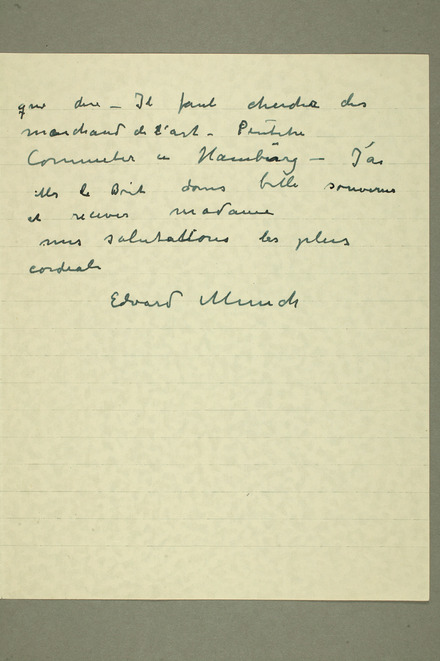 que dire – Il faut cherche des
marchand de l'art – Peutetre
Commeter in Hamburg – J'ai
le Doit belle souvenirs
et recever madame
mes salutations les plus
cordials
Edvard Munch